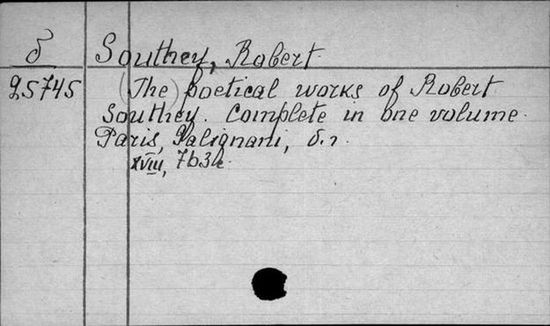 б Southey, Robert.
25745 (The) poetical works of Robert
Southey. Complete in one volume.
Paris, Galignani, б.г.
XVIII, 763 с.